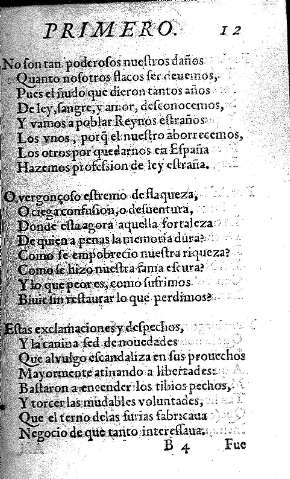 PRIMERO. 12
No son tan poderosos nuestros daños
Quanto nosotros flacos ser deuemos,
Pues el ñudo que dieron tantos años
De ley, sangre, y amor, desconocemos,
Y vamos a poblar Reynos estraños
Los vnos, porq̃ el nuestro aborrecemos,
Los otros por quedarnos en España
Hazemos profession de ley estraña.
O vergonçoso estremo de flaqueza,
O ciega confusion, o desuentura,
Donde esta agora aquella fortaleza
De quien a penas la memoria dura?
Como se empobrecio nuestra riqueza?
Como se hizo nuestra fama escura?
Y lo que peor es, como sufrimos
Biuir sin restaurar lo que perdimos?
Estas exclamaciones y despechos,
Y la canina sed de nouedades
Que al vulgo escandaliza en sus prouechos
Mayormente atinando a libertades:
Bastaron a encender los tibios pechos,
Y torcer las mudables voluntades,
Que el terno de las furias fabricaua
Negocio de que tanto interessaua.
B 4 Fue